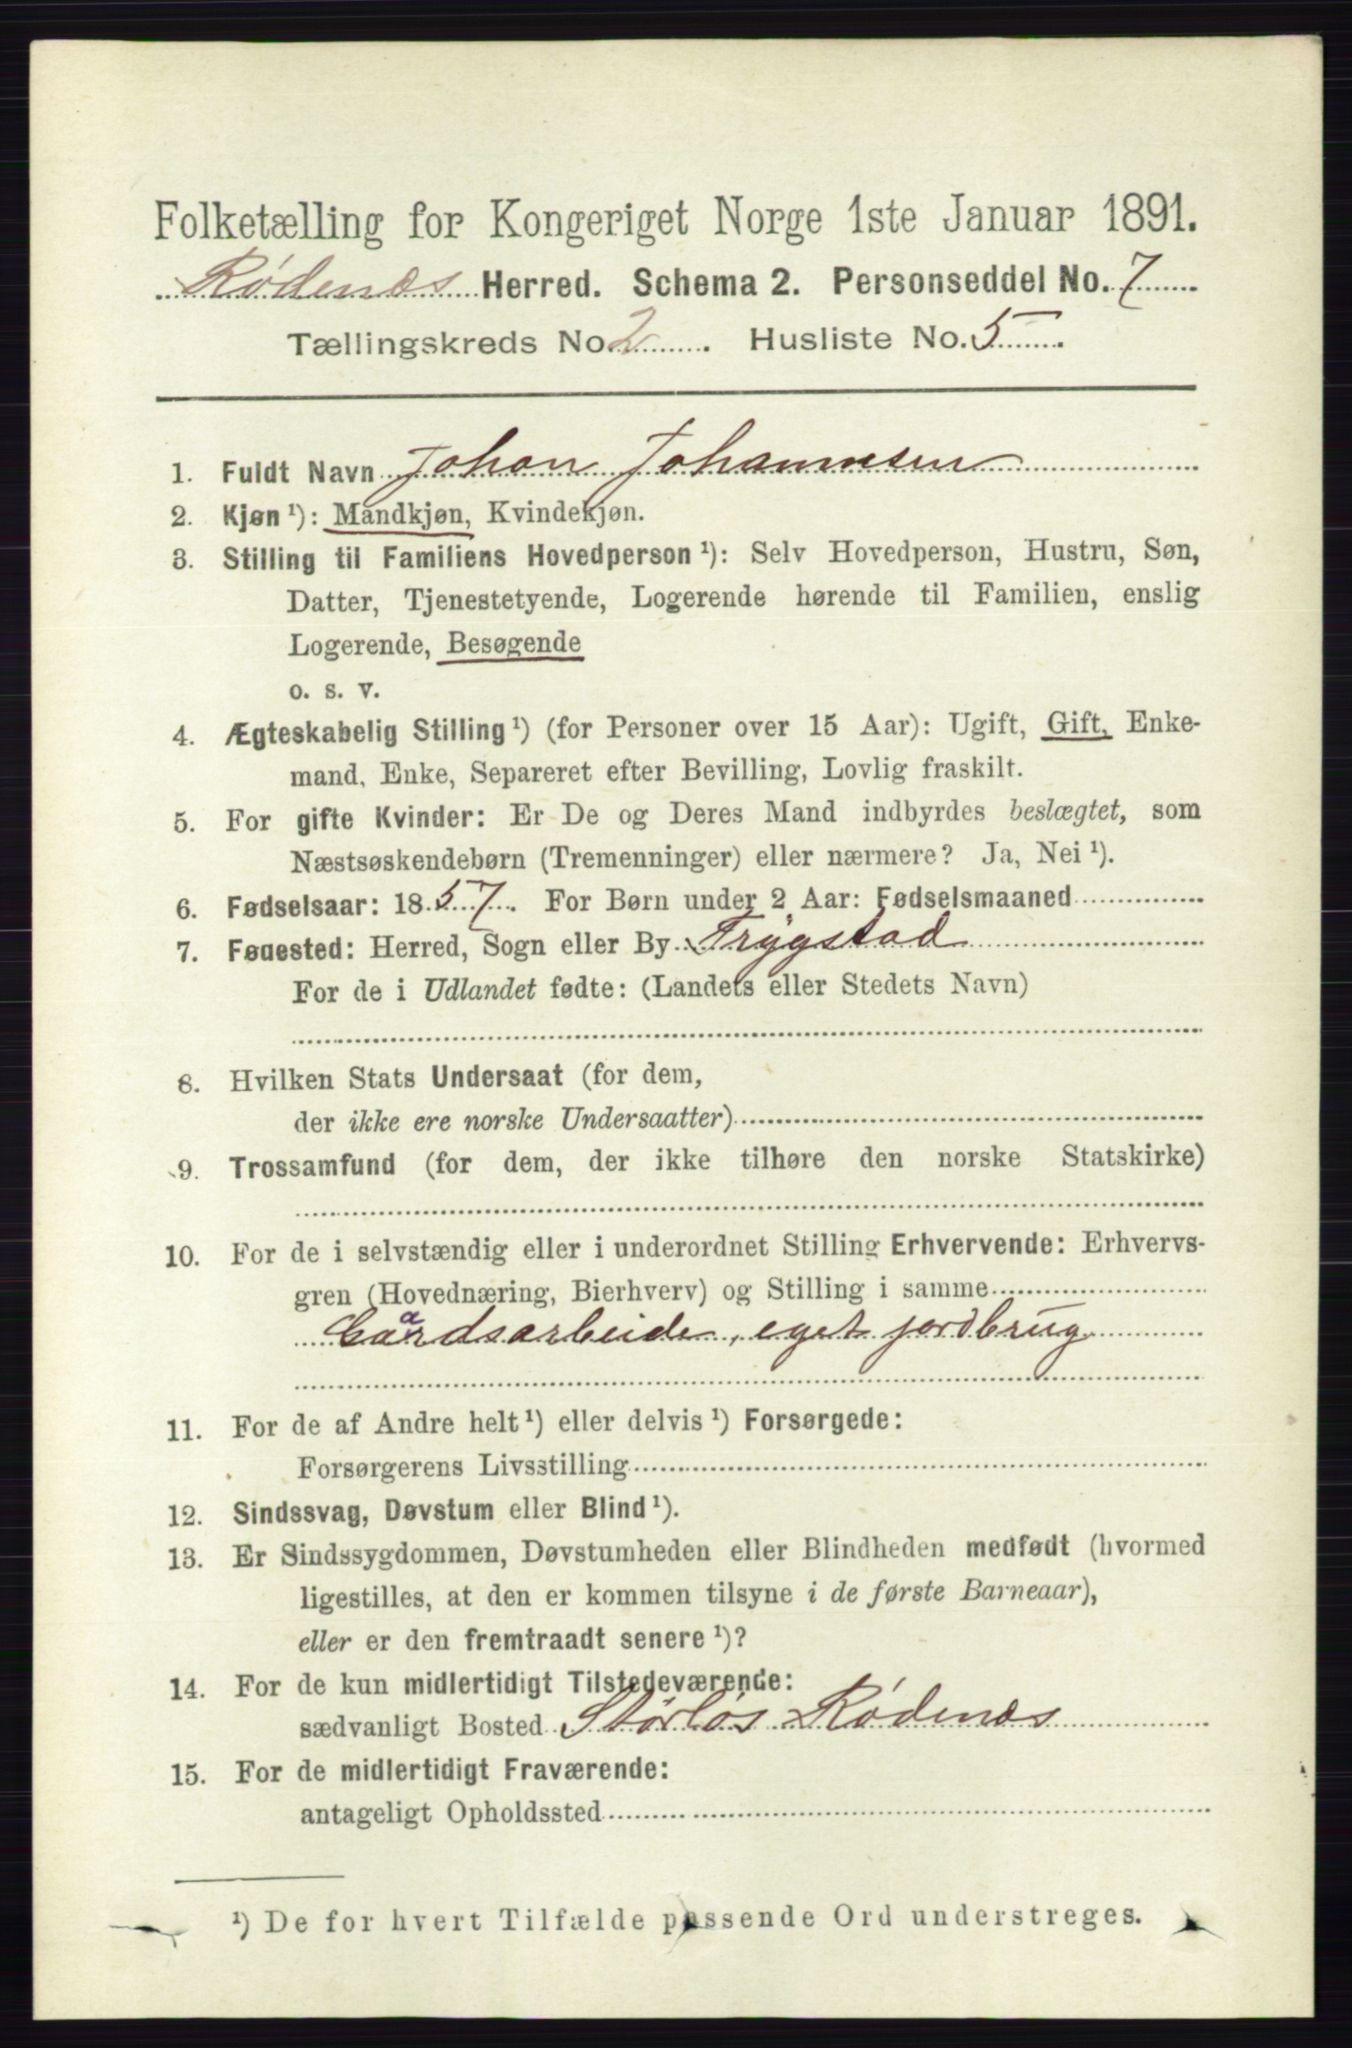 Folketælling for Kongeriget Norge 1ste Januar 1891.
Rødenæs Herred. Schema 2. Personseddel No. 7
Tællingskreds No. 2. Husliste No. 5.
1. Fuldt Navn Johan Johannesen
2. Kjøn ¹): Mandkjøn, Kvindekjøn.
3. Stilling til Familiens Hovedperson ¹): Selv Hovedperson, Hustru, Søn,
Datter, Tjenestetyende, Logerende hørende til Familien, enslig
Logerende, Besøgende
o. s. v.
4. Ægteskabelig Stilling ¹) (for Personer over 15 Aar): Ugift, Gift, Enke-
mand, Enke, Separeret efter Bevilling, Lovlig fraskilt.
5. For gifte Kvinder: Er De og Deres Mand indbyrdes beslægtet, som
Næstsøskendebørn (Tremenninger) eller nærmere? Ja, Nei ¹).
6. Fødselsaar: 1857. For Børn under 2 Aar: Fødselsmaaned
7. Fødested: Herred, Sogn eller By Trygstad
For de i Udlandet fødte: (Landets eller Stedets Navn)
8. Hvilken Stats Undersaat (for dem,
der ikke ere norske Undersaatter)
9. Trossamfund (for dem, der ikke tilhøre den norske Statskirke)
10. For de i selvstændig eller i underordnet Stilling Erhvervende: Erhvervs-
gren (Hovednæring, Bierhverv) og Stilling i samme
Gaardsarbeide, eget jordbrug
11. For de af Andre helt ¹) eller delvis ¹) Forsørgede:
Forsørgerens Livsstilling
12. Sindssvag, Døvstum eller Blind ¹).
13. Er Sindssygdommen, Døvstumheden eller Blindheden medfødt (hvormed
ligestilles, at den er kommen tilsyne i de første Barneaar),
eller er den fremtraadt senere ¹)?
14. For de kun midlertidigt Tilstedeværende:
sædvanligt Bosted Størløs Rødenæs
15. For de midlertidigt Fraværende:
antageligt Opholdssted
¹) De for hvert Tilfælde passende Ord understreges.